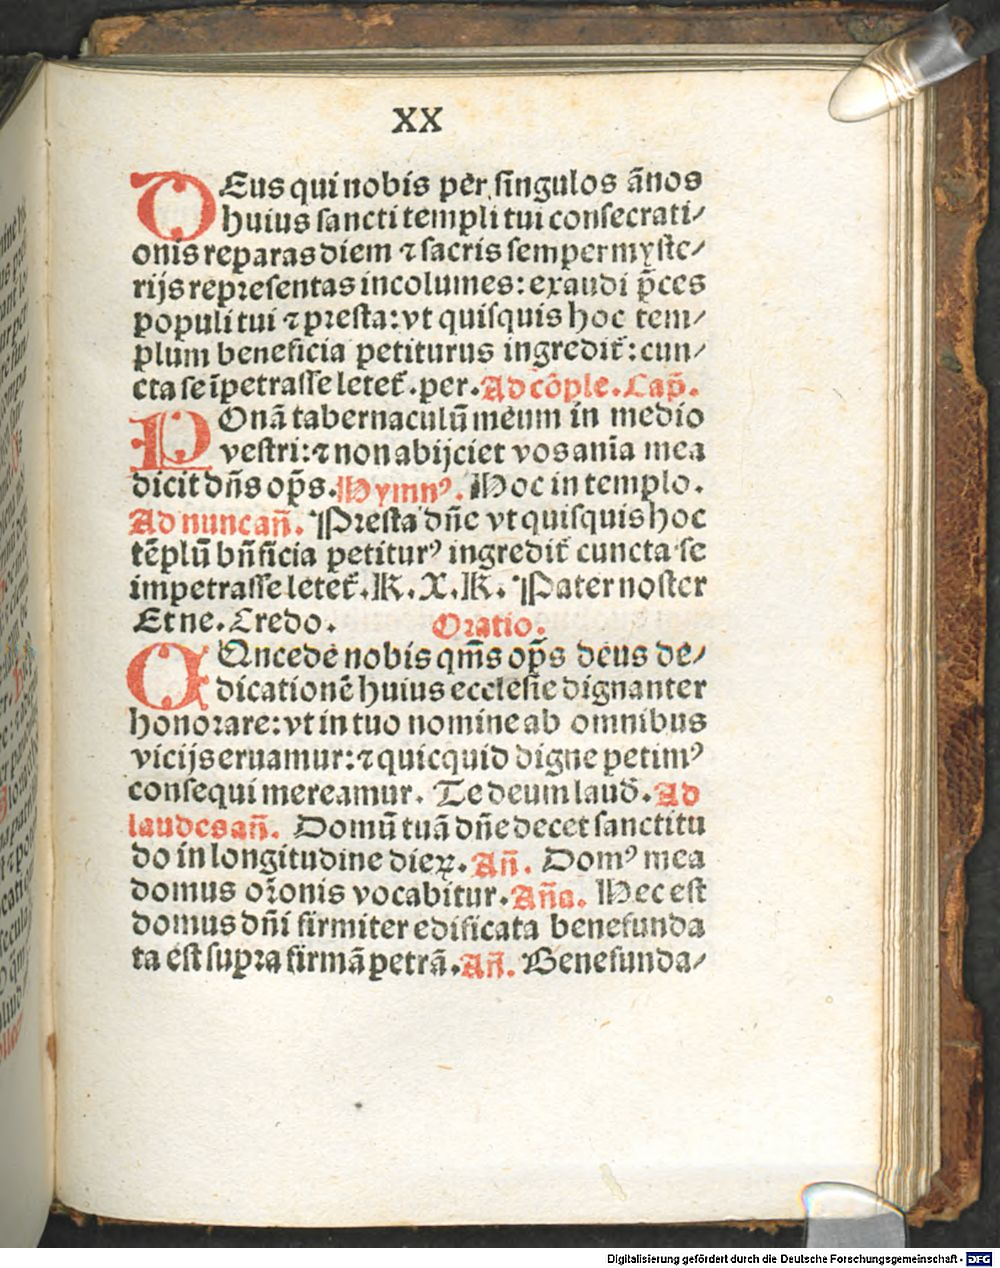 XX
DEus qui nobis per singulos ãnos
huius sancti templi tui consecrati⸗
onis reparas diem ⁊ sacris semper myste⸗
rijs representas incolumes: exaudi p̃ces
populi tui ⁊ presta: vt quisquis hoc tem⸗
plum beneficia petiturus ingredit̃: cun⸗
cta se ĩpetrasse letet̃. per. Ad cõple. Cap̃.
POnã tabernaculũ meum in medio
vestri: ⁊ non abijciet vos anĩa mea
dicit dñs op̃s. Hymnꝰ. Hoc in templo.
Ad nunc añ. Presta dñe vt quisquis hoc
tẽplũ bñficia petiturꝰ ingredit̃ cuncta se
impetrasse letet̃. K. X. K. Pater noster
Et ne. Credo. Oratio.
COncede nobis qm̃s op̃s deus de⸗
dicationẽ huius ecclesie dignanter
honorare: vt in tuo nomine ab omnibus
vicijs eruamur: ⁊ quicquid digne petimꝰ
consequi mereamur. Te deum laud̃. Ad
laudes añ. Domũ tuã dñe decet sanctitu
do in longitudine dieꝝ. Añ. Domꝰ mea
domus or̃onis vocabitur. Aña. Hec est
domus dñi firmiter edificata bene funda
ta est supra firmã petrã. Añ. Bene funda⸗
Digitalisierung gefördert durch die Deutsche Forschungsgemeinschaft - DFG